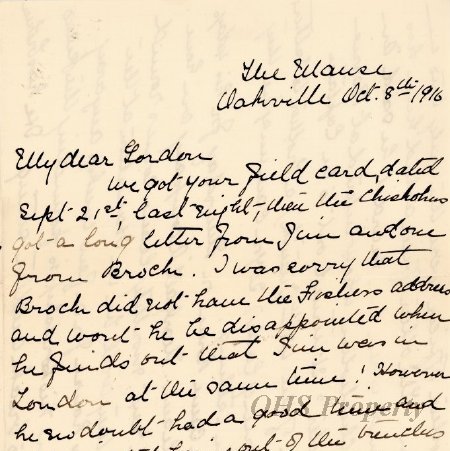 The Manse
Oakville Oct. 8th 1916
My dear Gordon
We got your field card, dated
Sept 21st, last night, then the Chisholms
got a long letter from Jim and one
from Brock. I was sorry that
Brock did not have the Foshers address
and wont he be disappointed when
he finds out that Jim was in
London at the same time! However
he no doubt had a good time and
out of the trenches
QHS Property